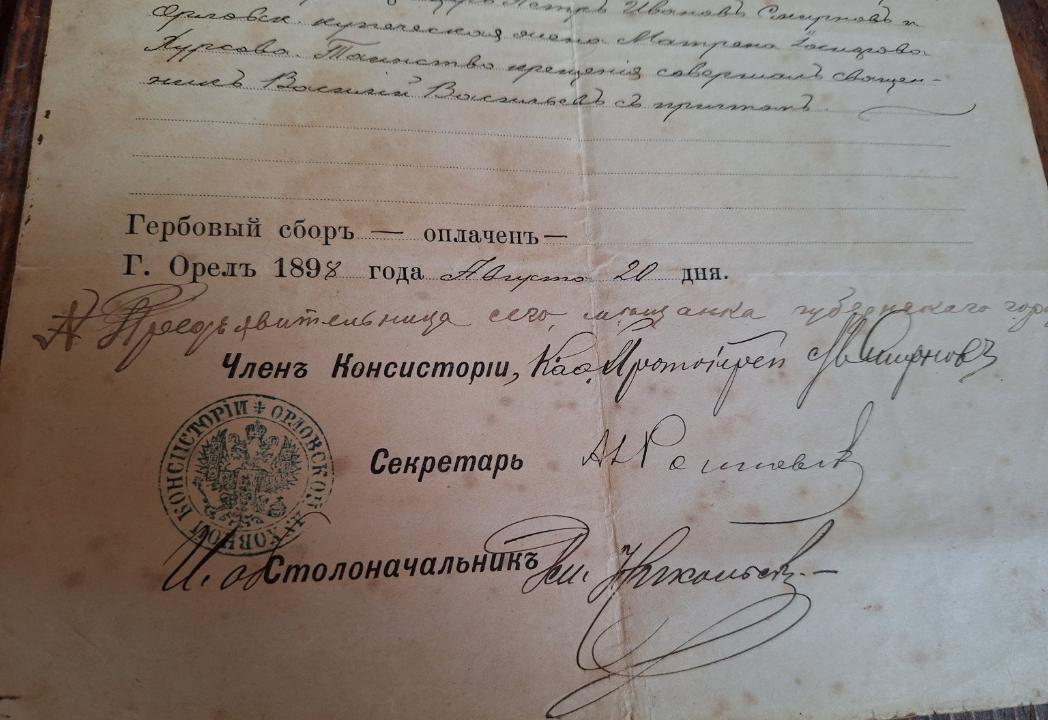 Петръ Ивановъ Смирновъ и
Орловск. купеческая жена Матрена
Хурсова. Таинство крещенія совершалъ священ-
никъ Василій Васильевъ съ причтомъ
Гербовый сборъ — оплаченъ —
Г. Орелъ 1898 года Августа 20 дня.
Предъявительница сего, мѣщанка губернскаго горо
Членъ Консисторіи, Каѳ. Протоіерей
ОРЛОВСКОЙ ДУХОВНОЙ КОНСИСТОРІИ
Секретарь
И. об. Столоначальникъ Никольскій